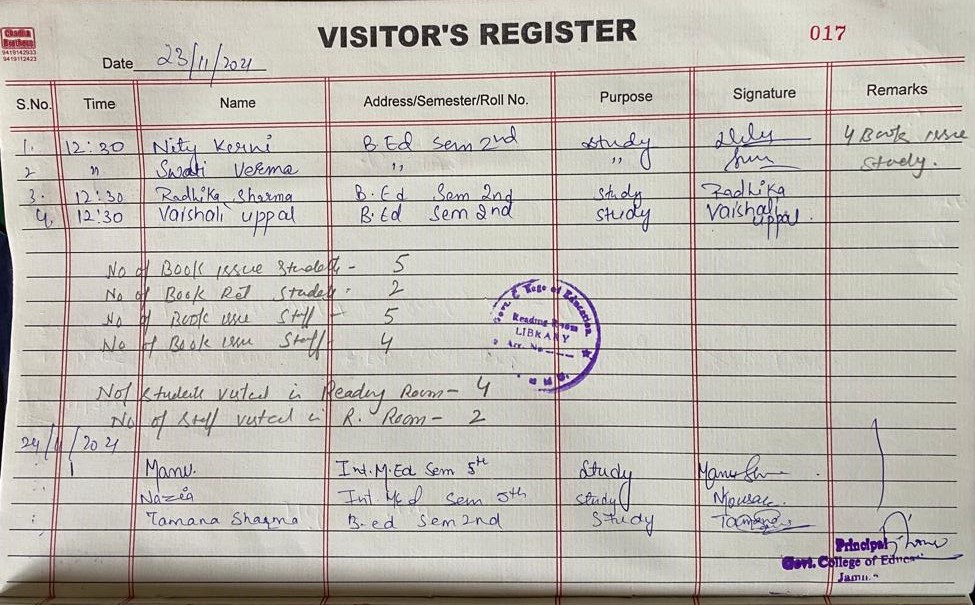 Chadha
Brothers
9419142933
9419112423
VISITOR'S REGISTER
017
Date 23/11/2021
S.No. Time Name Address/Semester/Roll No. Purpose Signature Remarks
1. 12:30 Nity Kerni B.Ed Sem 2nd study 4 Book issue
2 " Swati Verma " " study.
3. 12:30 Radhika Sharma B.Ed Sem 2nd study Radhika
4. 12:30 Vaishali uppal B.Ed Sem 2nd study Vaishali uppal
No of Book issue Students - 5
No of Book Ret Students - 2
No of Book issue Staff - 5
No of Book issue Staff 4
No of Students visited in Reading Room - 4
No of Staff visited in R. Room - 2
Govt. College of Education
Reading Room
LIBRARY
Acc. No
24/11/2021
1 Manu. Int.M.Ed Sem 5th Study
Nazia Int. M.Ed Sem 5th study
Tamana Sharma B.ed Sem 2nd Study Tamana
Principal
Govt. College of Educa
Jammu